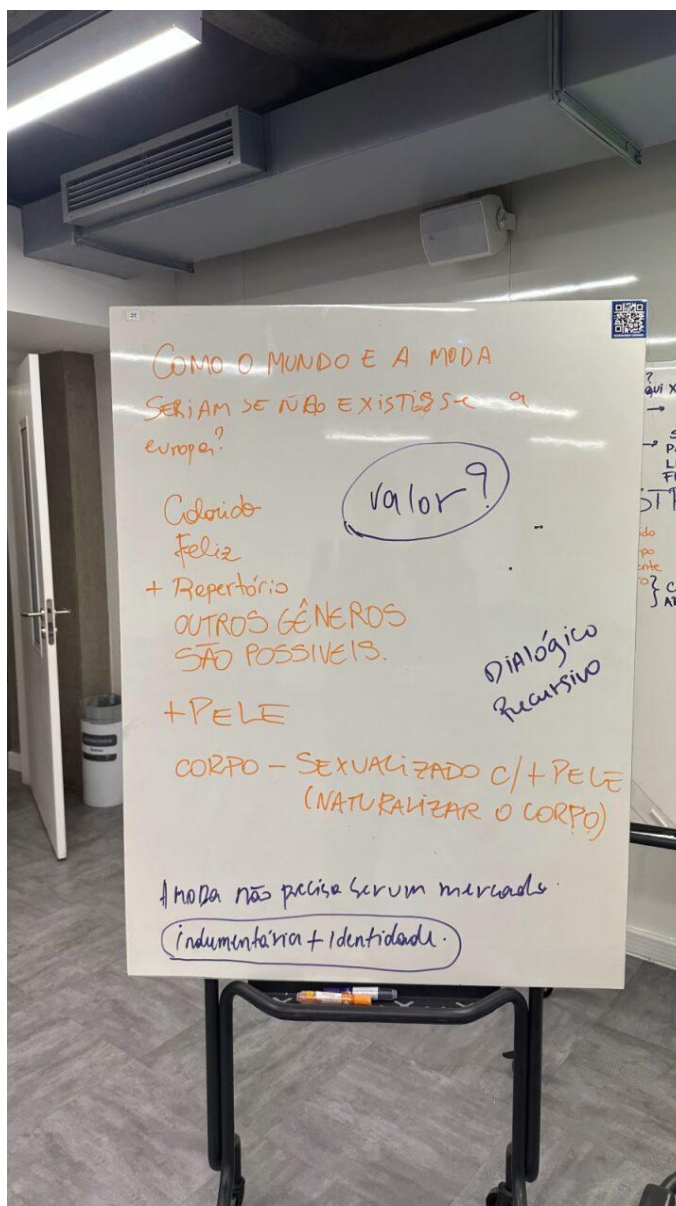 COMO O MUNDO E A MODA
SERIAM SE NÃO EXISTISSE a
europa?
valor?
Colorido
Feliz
+ Repertório
OUTROS GÊNEROS
SÃO POSSIVEIS.
DIALÓGICO
Recursivo
+ PELE
CORPO – SEXUALIZADO C/ + PELE
(NATURALIZAR O CORPO)
A moda não precisa ser um mercado.
indumentária + Identidade.
?
QUI X
→
→